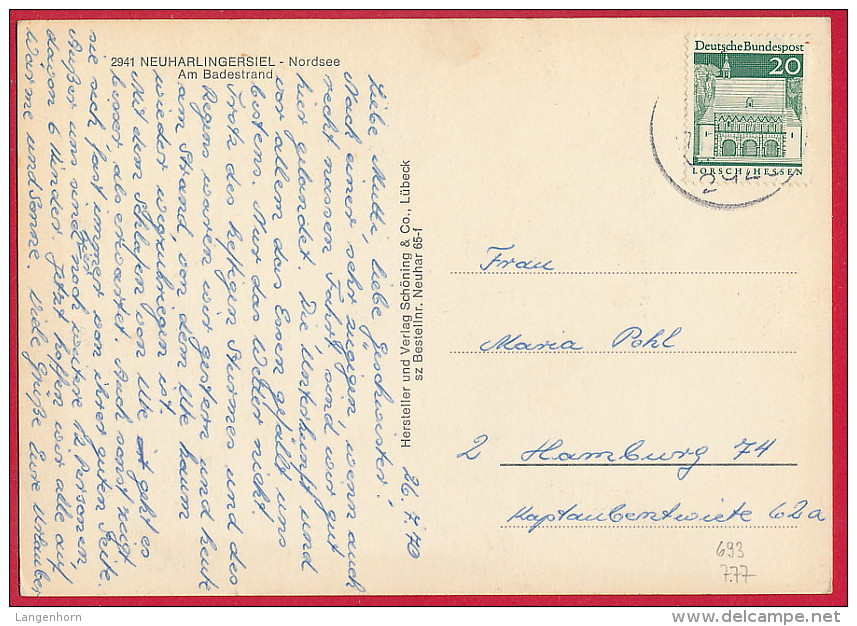 2941 NEUHARLINGERSIEL - Nordsee
Am Badestrand
26.7.70
Liebe Mutti, liebe Geschwister!
Nach einer sehr zugigen, wenn auch
recht nassen Fahrt, sind wir gut
hier gelandet. Die Unterkunft und
vor allem das Essen gefällt uns
bestens. Nur das Wetter nicht.
Trotz des heftigen Sturmes und des
Regens waren wir gestern und heute
am Strand, von dem Ute kaum
wieder wegzukriegen ist.
Mit dem Schlafen von Ute geht es
besser als erwartet. Auch sonst zeigt
sie sich fast immer von ihrer guten Seite.
Außer uns sind noch weitere 12 Personen,
davon 6 Kinder. Jetzt hoffen wir alle auf
Wärme und Sonne. Viele Grüße Eure Urlauber
Hersteller und Verlag Schöning & Co., Lübeck
sz Bestellnr. Neuhar 65-f
Deutsche Bundespost
20
LORSCH/HESSEN
Frau
Maria Pohl
2 Hamburg 74
Kaptaubentwiete 62a
693
7.77
Langenhorn
delcampe.net